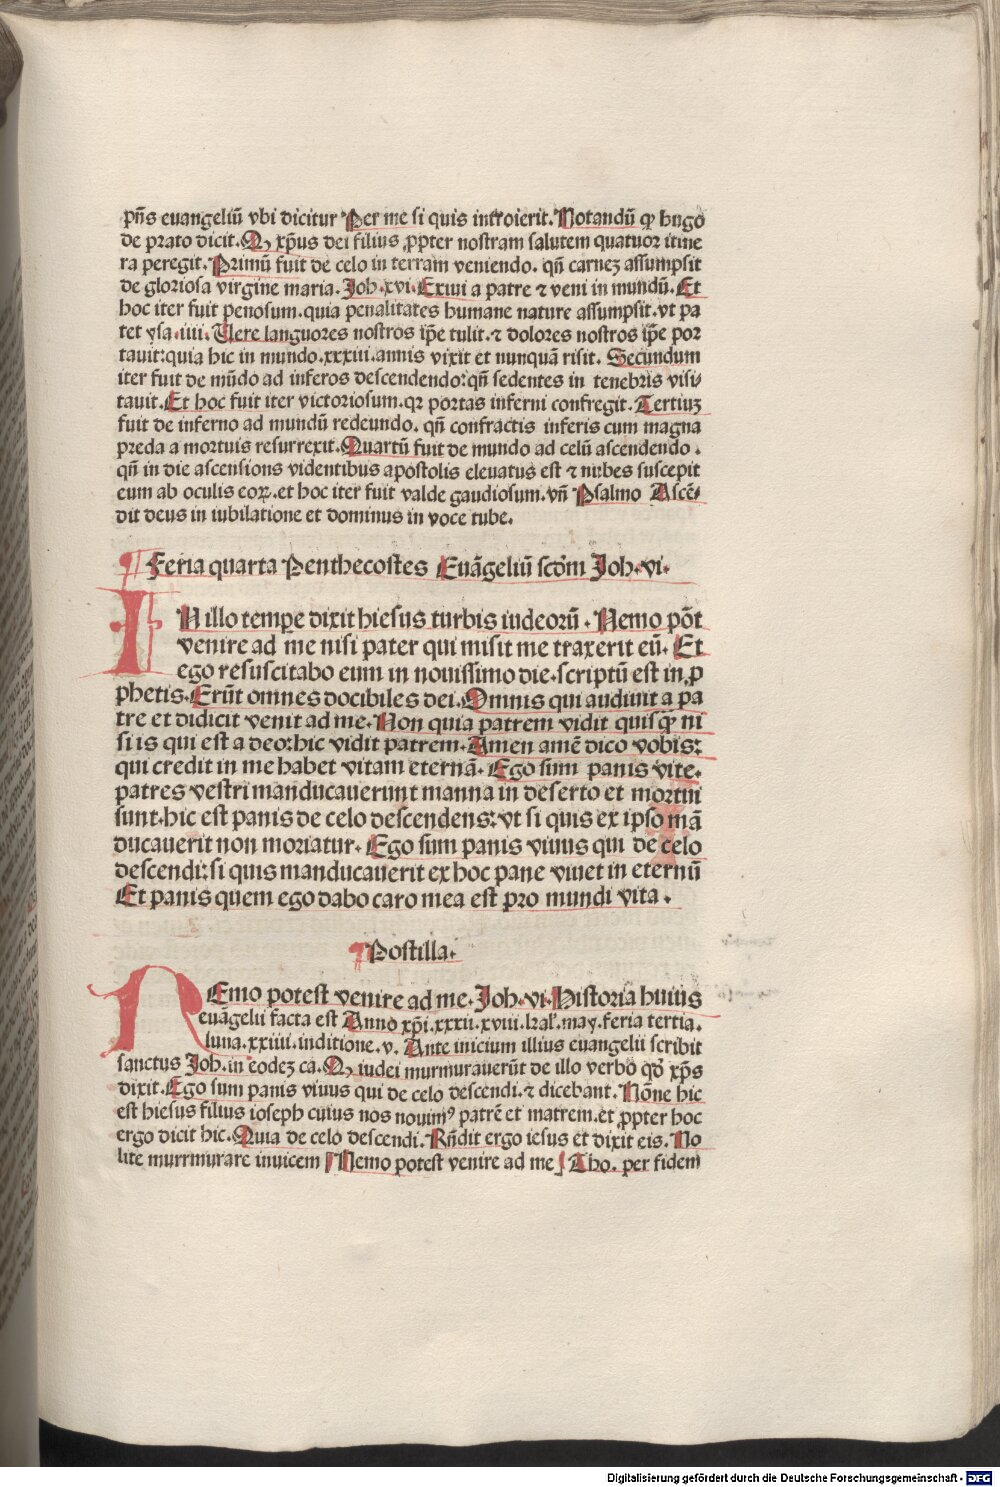 pn̄s euangeliū vbi dicitur Per me si quis introierit. Notandū ꝙ hugo
de prato dicit. Q̃ xp̄us dei filius ꝓpter nostram salutem quatuor itine
ra peregit. Primū fuit de celo in terram veniendo. qn̄ carneꝫ assumpsit
de gloriosa virgine maria. Joh. xvi. Exiui a patre ⁊ veni in mundū. Et
hoc iter fuit penosum. quia penalitates humane nature assumpsit. vt pa
tet ysa. iiii. Uere languores nostros ip̄e tulit. ⁊ dolores nostros ip̄e por
tauit: quia hic in mundo .xxxiii. annis vixit et nunquā risit. Secundum
iter fuit de mūdo ad inferos descendendo: qn̄ sedentes in tenebris visi⸗
tauit. Et hoc fuit iter victoriosum. qꝛ portas inferni confregit. Tertiuꝫ
fuit de inferno ad mundū redeundo. qn̄ confractis inferis cum magna
preda a mortuis resurrexit. Quartū fuit de mundo ad celū ascendendo.
qn̄ in die ascensions videntibus apostolis eleuatus est ⁊ nubes suscepit
eum ab oculis eoꝝ. et hoc iter fuit valde gaudiosum. vn̄ Psalmo Ascē⸗
dit deus in iubilatione et dominus in voce tube.
¶ Feria quarta Penthecostes Euāgeliū scd̄m Joh. vi.
IN illo tempe̱ dixit hiesus turbis iudeorū. Nemo pōt
venire ad me nisi pater qui misit me traxerit eū. Et
ego resuscitabo eum in nouissimo die. scriptū est in ꝓ
phetis. Erūt omnes docibiles dei. Omnis qui audiuit a pa
tre et didicit venit ad me. Non quia patrem vidit quisꝙ̄ ni
si is qui est a deo: hic vidit patrem. Amen amē dico vobis:
qui credit in me habet vitam eternā. Ego sum panis vite.
patres vestri manducauerunt manna in deserto et mortui
sunt. hic est panis de celo descendens: vt si quis ex ipso mā
ducauerit non moriatur. Ego sum panis viuus qui de celo
descendi: si quis manducauerit ex hoc pane viuet in eternū
Et panis quem ego dabo caro mea est pro mundi vita.
¶ Postilla.
NEmo potest venire ad me. Joh. vi. Historia huius
euāgelii facta est Anno xp̄i. xxxii. xviii. kal̄. may. feria tertia.
luna. xxiiii. inditione. v. Ante inicium illius euangelii scribit
sanctus Joh. in eodeꝫ ca. Q̃ iudei murmurauerūt de illo verbo qd̄ xp̄s
dixit. Ego sum panis viuus qui de celo descendi. ⁊ dicebant. Nōne hic
est hiesus filius ioseph cuius nos nouimꝰ patrē et matrem. et ꝓpter hoc
ergo dicit hic. Quia de celo descendi. Rn̄dit ergo iesus et dixit eis. No
lite murrmurare inuicem Nemo potest venire ad me Tho. per fidem
Digitalisierung gefördert durch die Deutsche Forschungsgemeinschaft - DFG